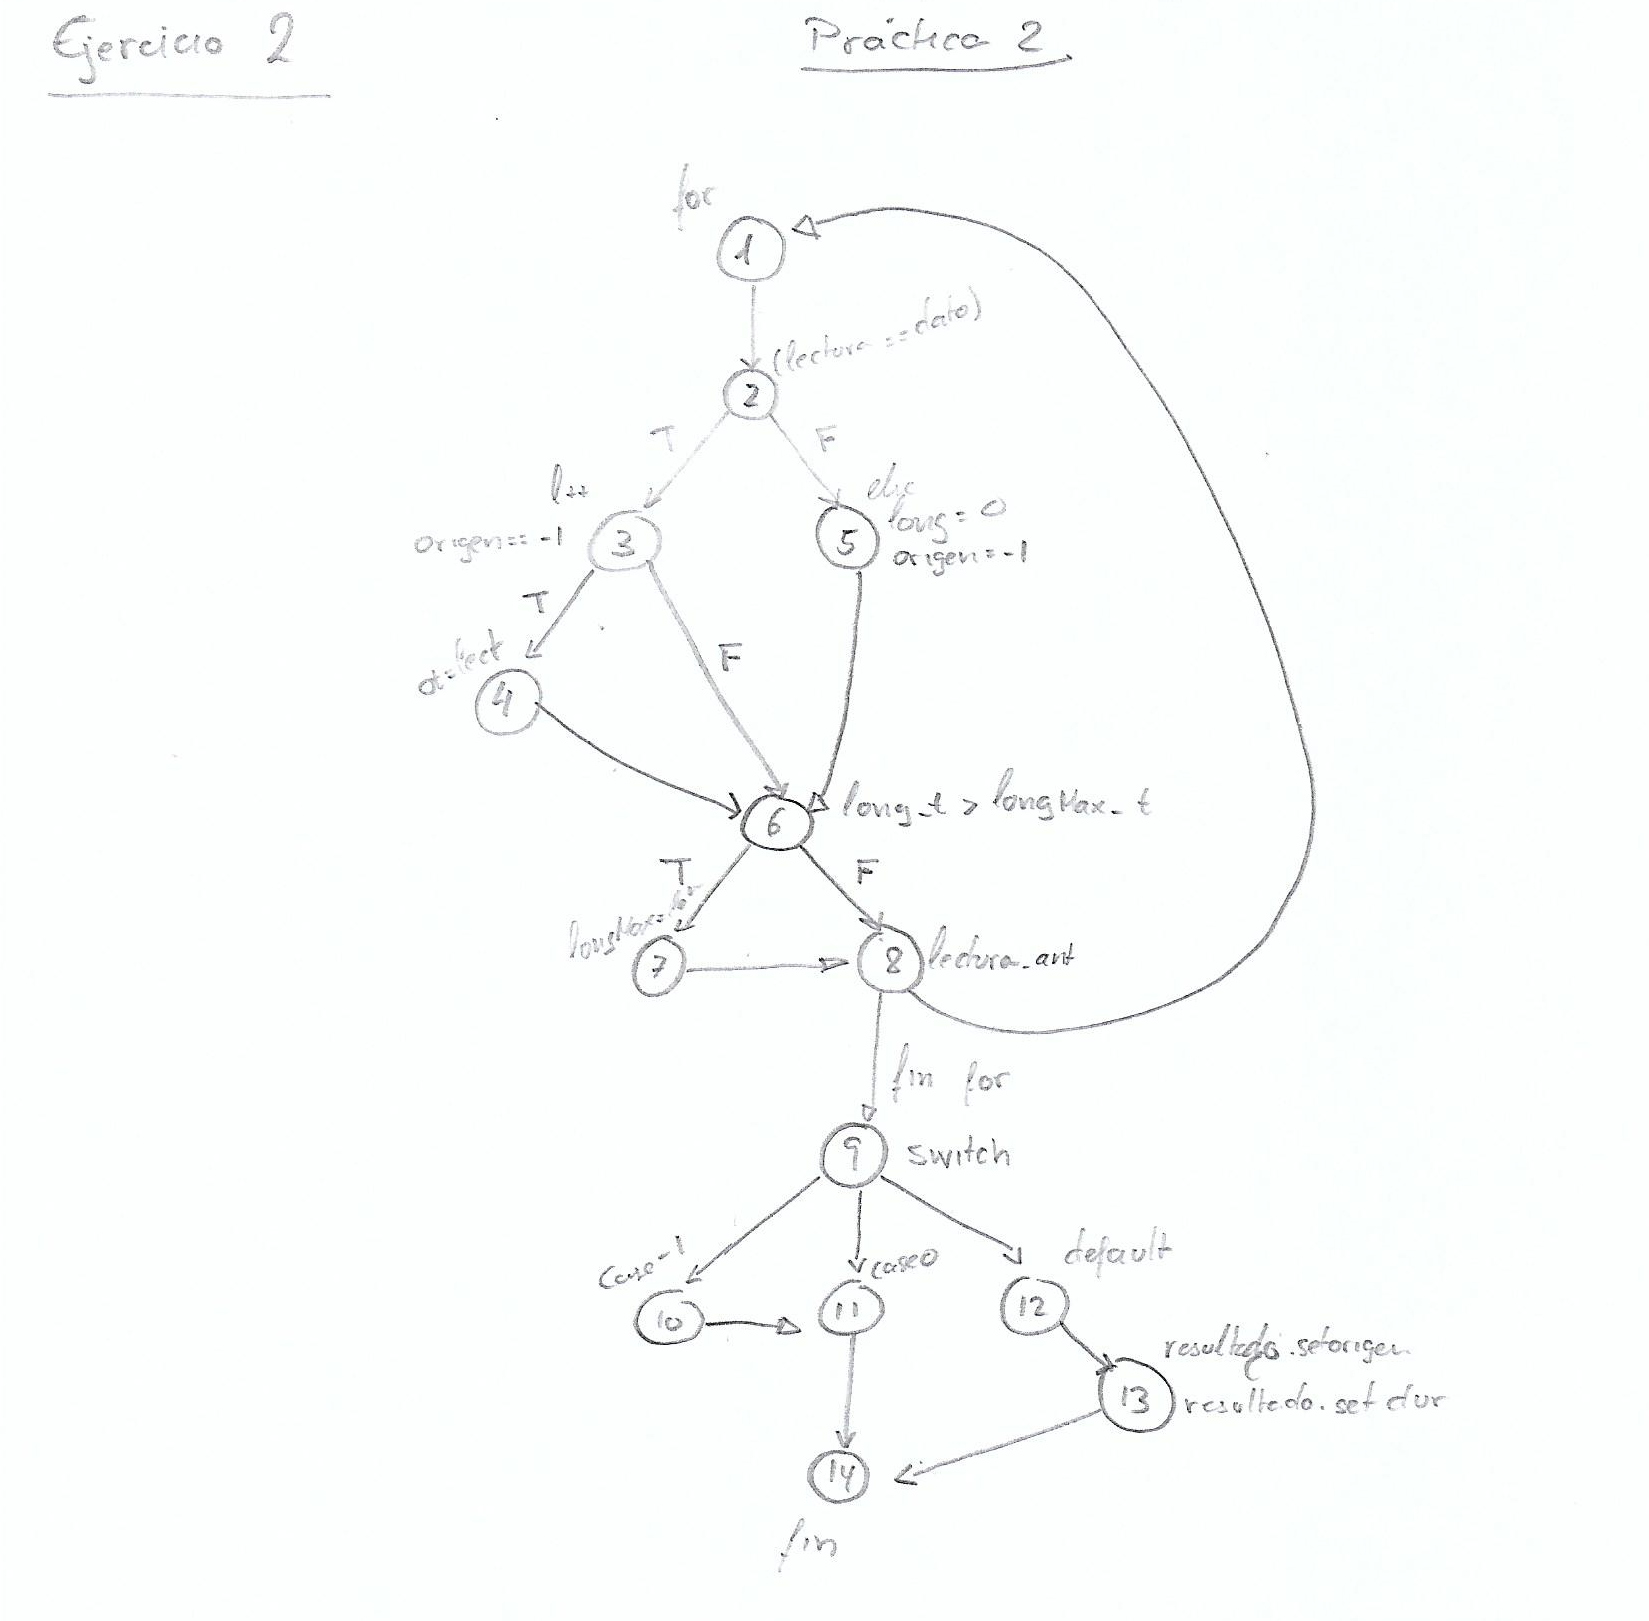 Ejercicio 2
Práctica 2
for
1
(lectura == dato)
2
T
F
l++
origen == -1
3
else
long = 0
origen = -1
5
T
F
4
6
long_t > longMax_t
T
F
longMax =
7
8
lectura_ant
fin for
9
switch
case -1
case 0
default
10
11
12
resultado.setorigen
13
resultado.set dur
14
fin